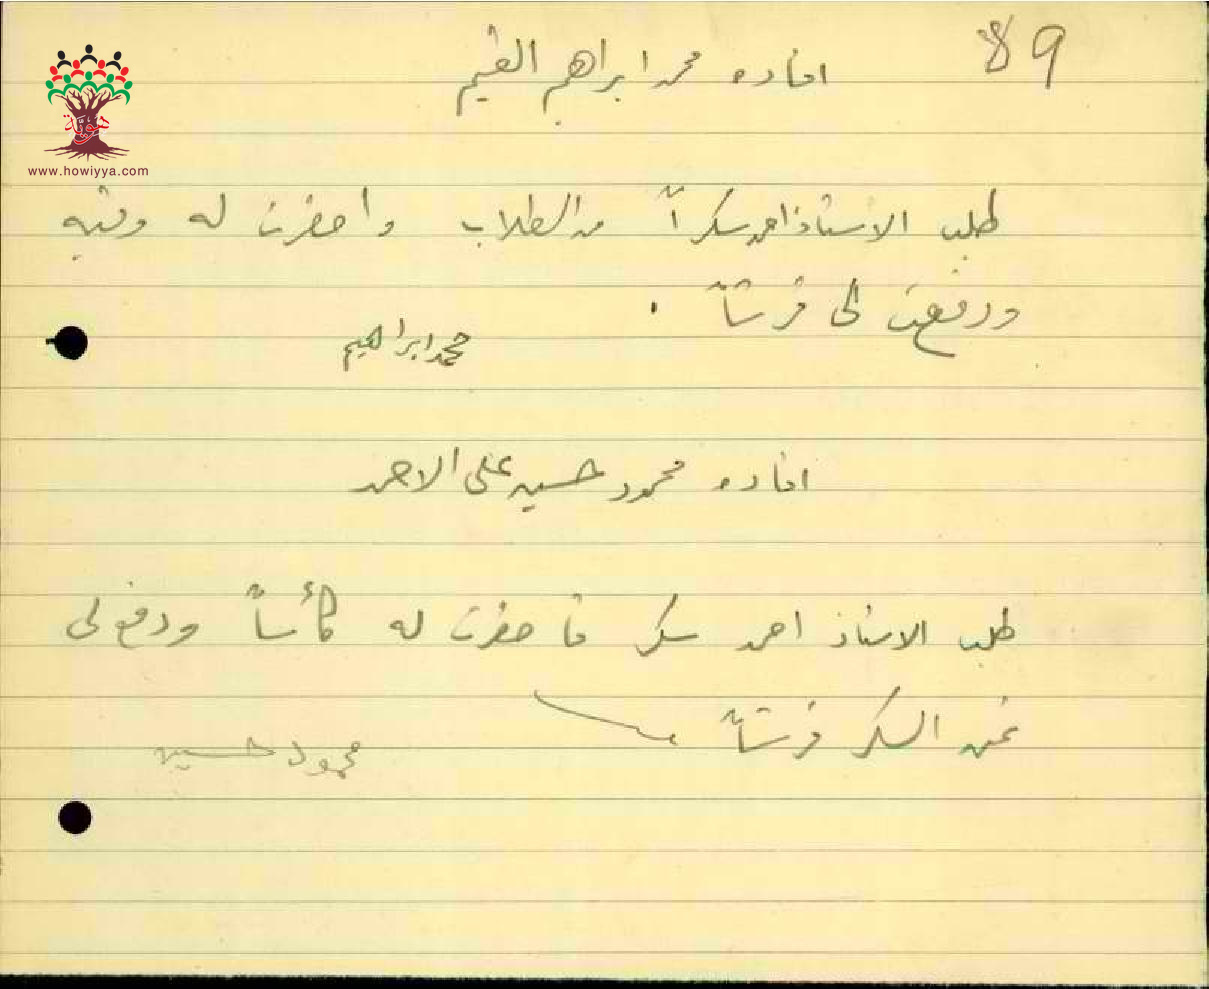 89
افاده محمد ابراهيم القيم
هوية
www.howiyya.com
طلب الاستاذ احمد سكراً من الطلاب واحضرت له وقيه
ودفعت لي قرشاً .
محمد ابراهيم
افاده محمود حسين علي الاحمد
طلب الاستاذ احمد سكر فاحضرت له كأساً ودفع لي
ثمن السكر قرشاً
محمود حسين